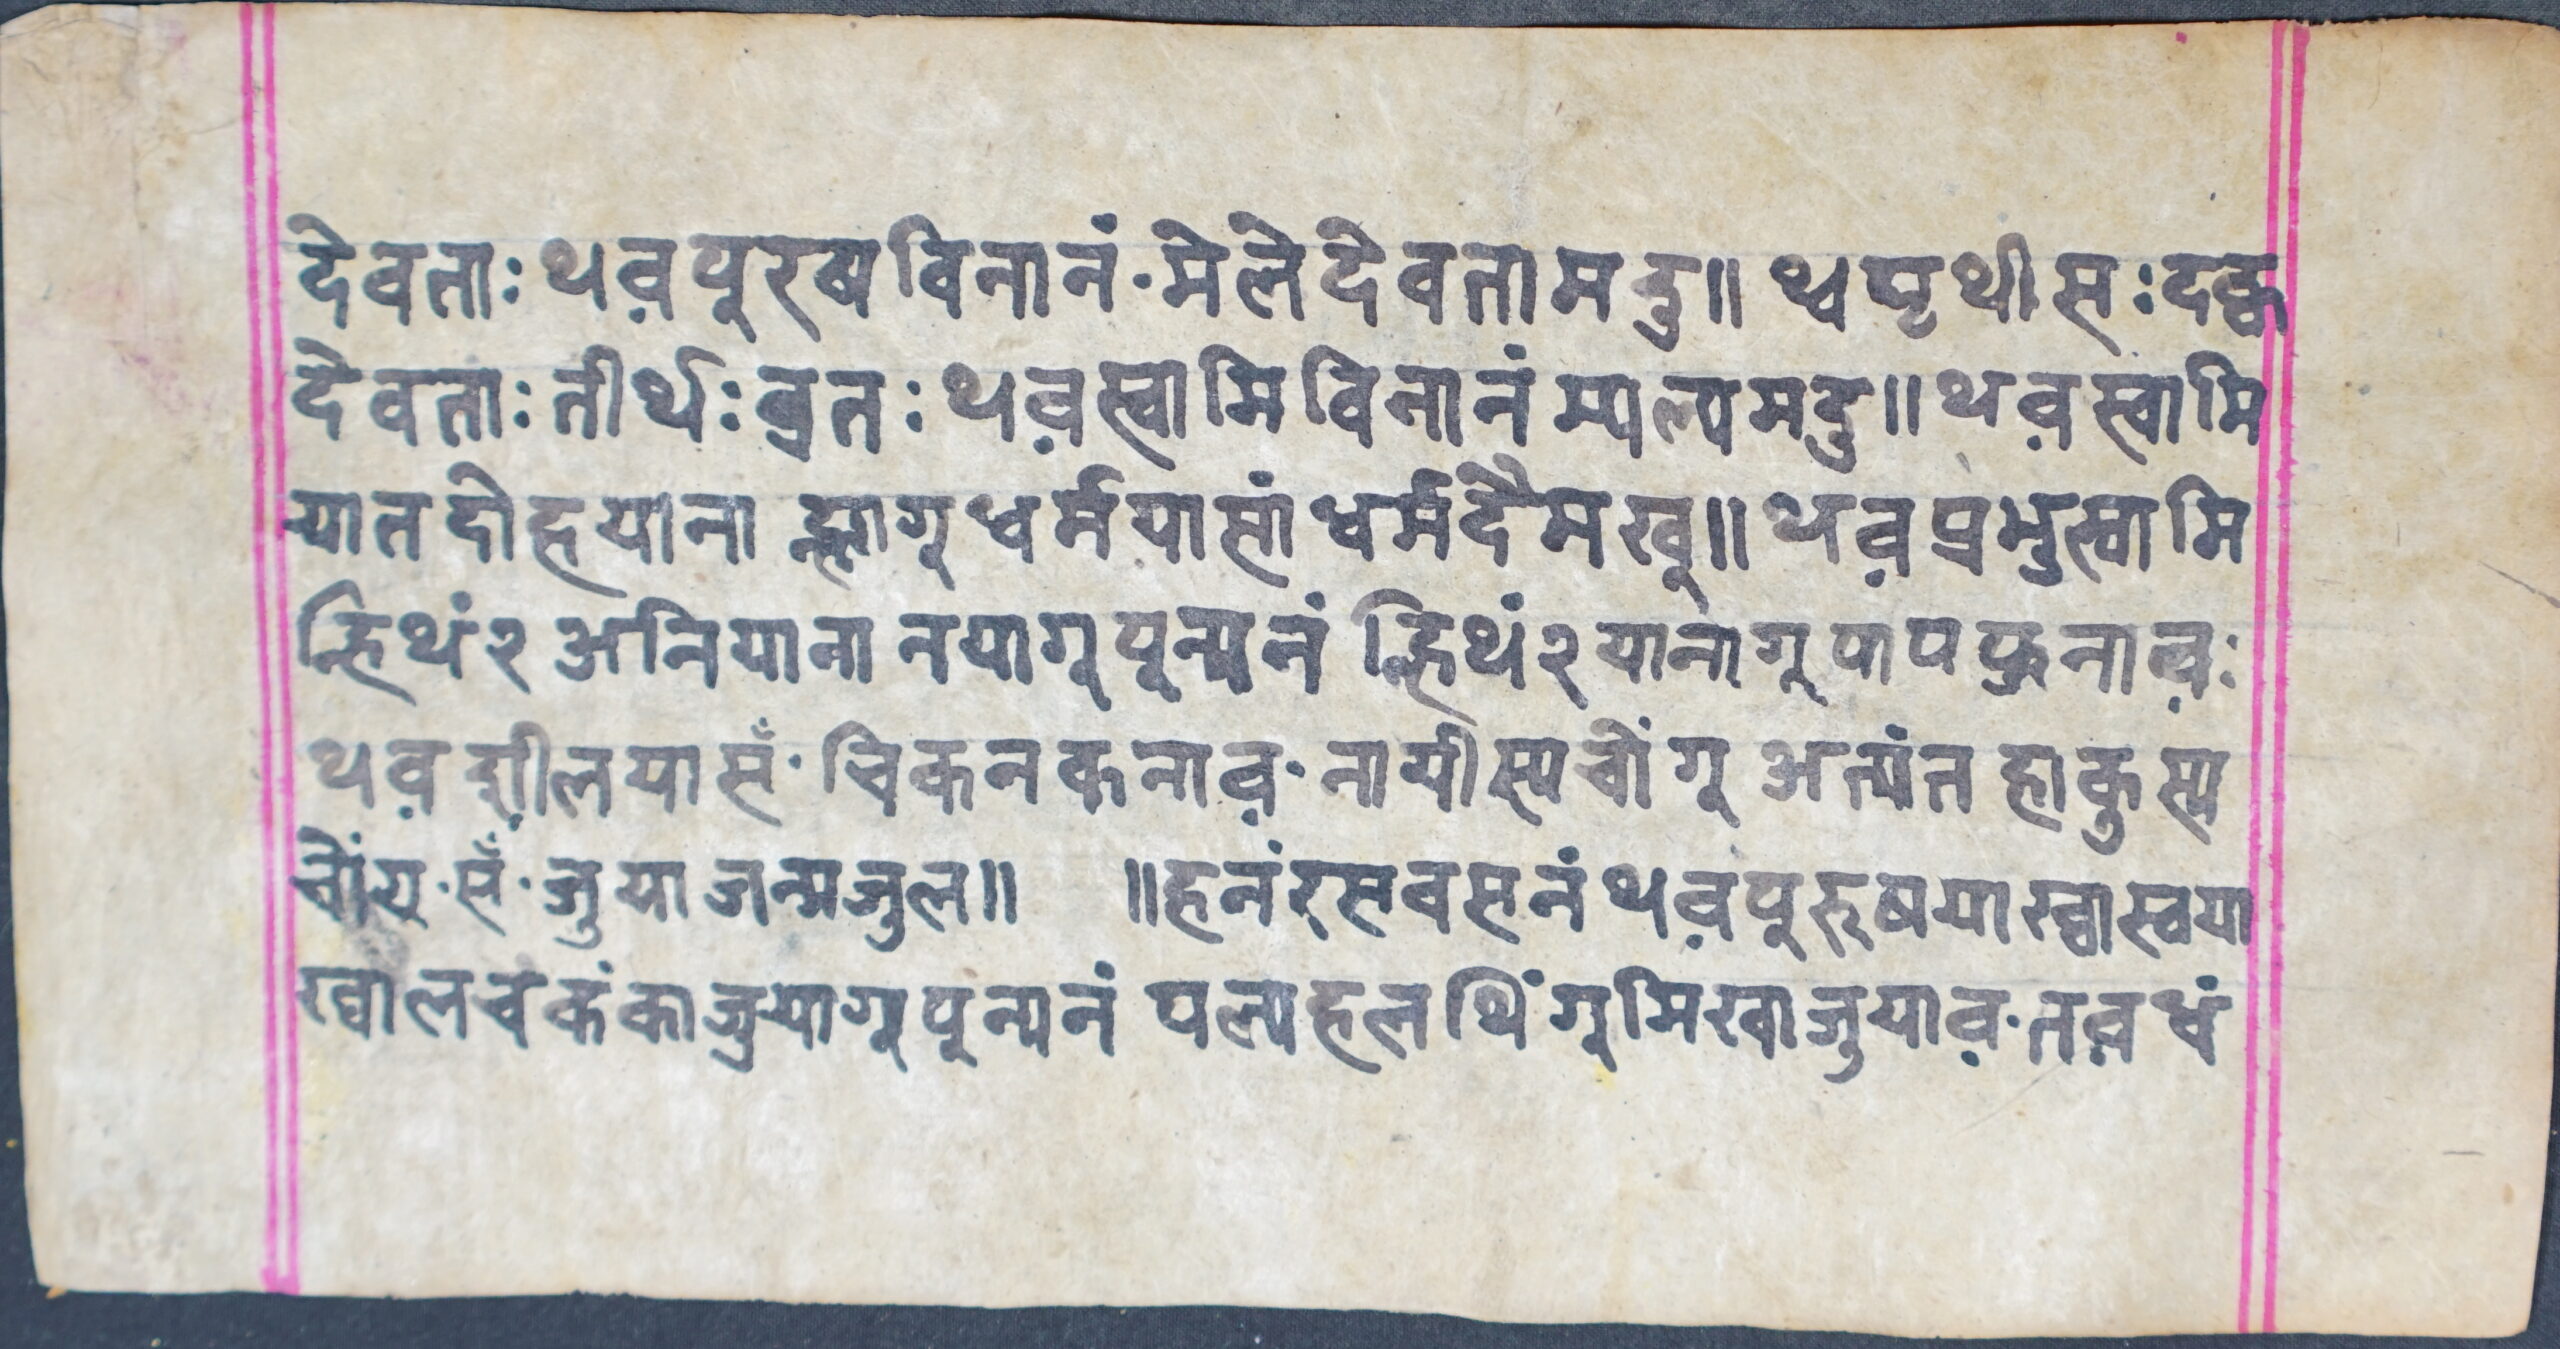 देवताः थव़ पुरुष विनानं · मेले देवता मदु॥ थ्व पृथीसः दक्व
देवताः तीर्थः ब्रतः थव़ स्वामि विनानं म्यल्य मदु॥ थव़ स्वामि
यात दोहयाना ह्मागू धर्मयासां धर्म दैमखू॥ थव़ प्रभु स्वामि
न्हिथं२ अनियाना नयागू पून्यनं न्हिथं२ यानागू पाप फुनाव़ः
थव़ शीलयासँ · चिकनकनाव़ · नायीस्य चोंगू अत्यंत हाकुस्य
चोंगु · सँ · जुया जन्मजुल॥ ॥हनं रसवसनं थव़ पुरुषया ख्वास्वया
ख्वालचकंका जुयागू पून्यनं पल्यहलथिंगू मिखाजुयाव़ · तव़धं